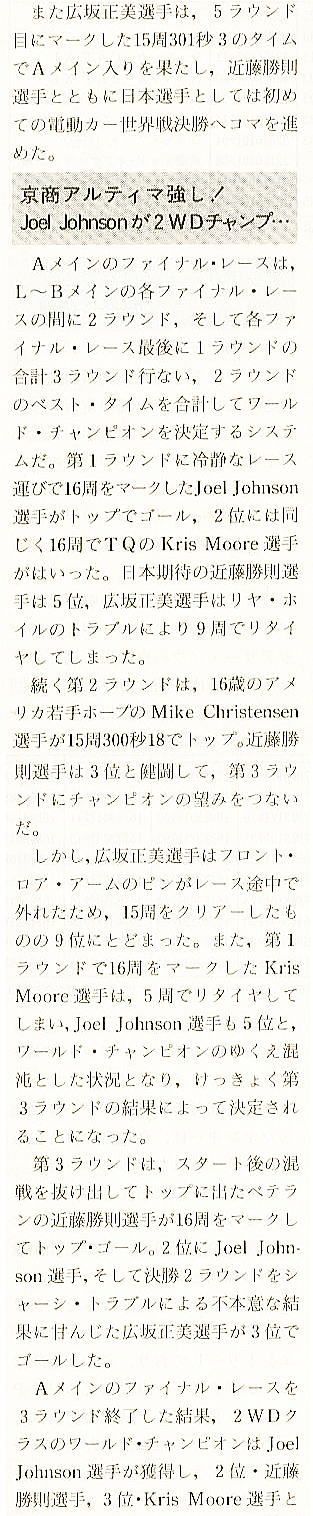 また広坂正美選手は，5ラウンド
目にマークした15周301秒3のタイム
でAメイン入りを果たし，近藤勝則
選手とともに日本選手としては初め
ての電動カー世界戦決勝へコマを進
めた。
京商アルティマ強し！
Joel Johnsonが2WDチャンプ…
Aメインのファイナル・レースは，
L〜Bメインの各ファイナル・レー
スの間に2ラウンド，そして各ファ
イナル・レース最後に1ラウンドの
合計3ラウンド行ない，2ラウンド
のベスト・タイムを合計してワール
ド・チャンピオンを決定するシステ
ムだ。第1ラウンドに冷静なレース
運びで16周をマークしたJoel Johnson
選手がトップでゴール，2位には同
じく16周でTQのKris Moore選手
がはいった。日本期待の近藤勝則選
手は5位，広坂正美選手はリヤ・ホ
イルのトラブルにより9周でリタイ
ヤしてしまった。
続く第2ラウンドは，16歳のアメ
リカ若手ホープのMike Christensen
選手が15周300秒18でトップ。近藤勝
則選手は3位と健闘して，第3ラウ
ンドにチャンピオンの望みをつない
だ。
しかし，広坂正美選手はフロント・
ロア・アームのピンがレース途中で
外れたため，15周をクリアーしたも
のの9位にとどまった。また，第1
ラウンドで16周をマークしたKris
Moore選手は，5周でリタイヤして
しまい，Joel Johnson選手も5位と，
ワールド・チャンピオンのゆくえ混
沌とした状況となり，けっきょく第
3ラウンドの結果によって決定され
ることになった。
第3ラウンドは，スタート後の混
戦を抜け出してトップに出たベテラ
ンの近藤勝則選手が16周をマークし
てトップ・ゴール。2位にJoel John-
son選手，そして決勝2ラウンドをシ
ャーシ・トラブルによる不本意な結
果に甘んじた広坂正美選手が3位で
ゴールした。
Aメインのファイナル・レースを
3ラウンド終了した結果，2WDク
ラスのワールド・チャンピオンはJoel
Johnson選手が獲得し，2位・近藤
勝則選手，3位・Kris Moore選手と